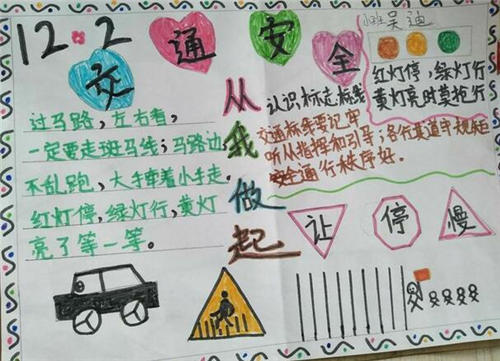 12·2
交通安全
吴迪
红灯停,绿灯行
黄灯亮时莫抢行
过马路,左右看,
一定要走斑马线;马路边
不乱跑,大手牵着小手走。
红灯停,绿灯行,黄灯
亮了等一等。
从我做起
认识标志标线
交通标线要记牢
听从指挥和引导;各行其道守规矩
安全通行秩序好。
让
停
慢